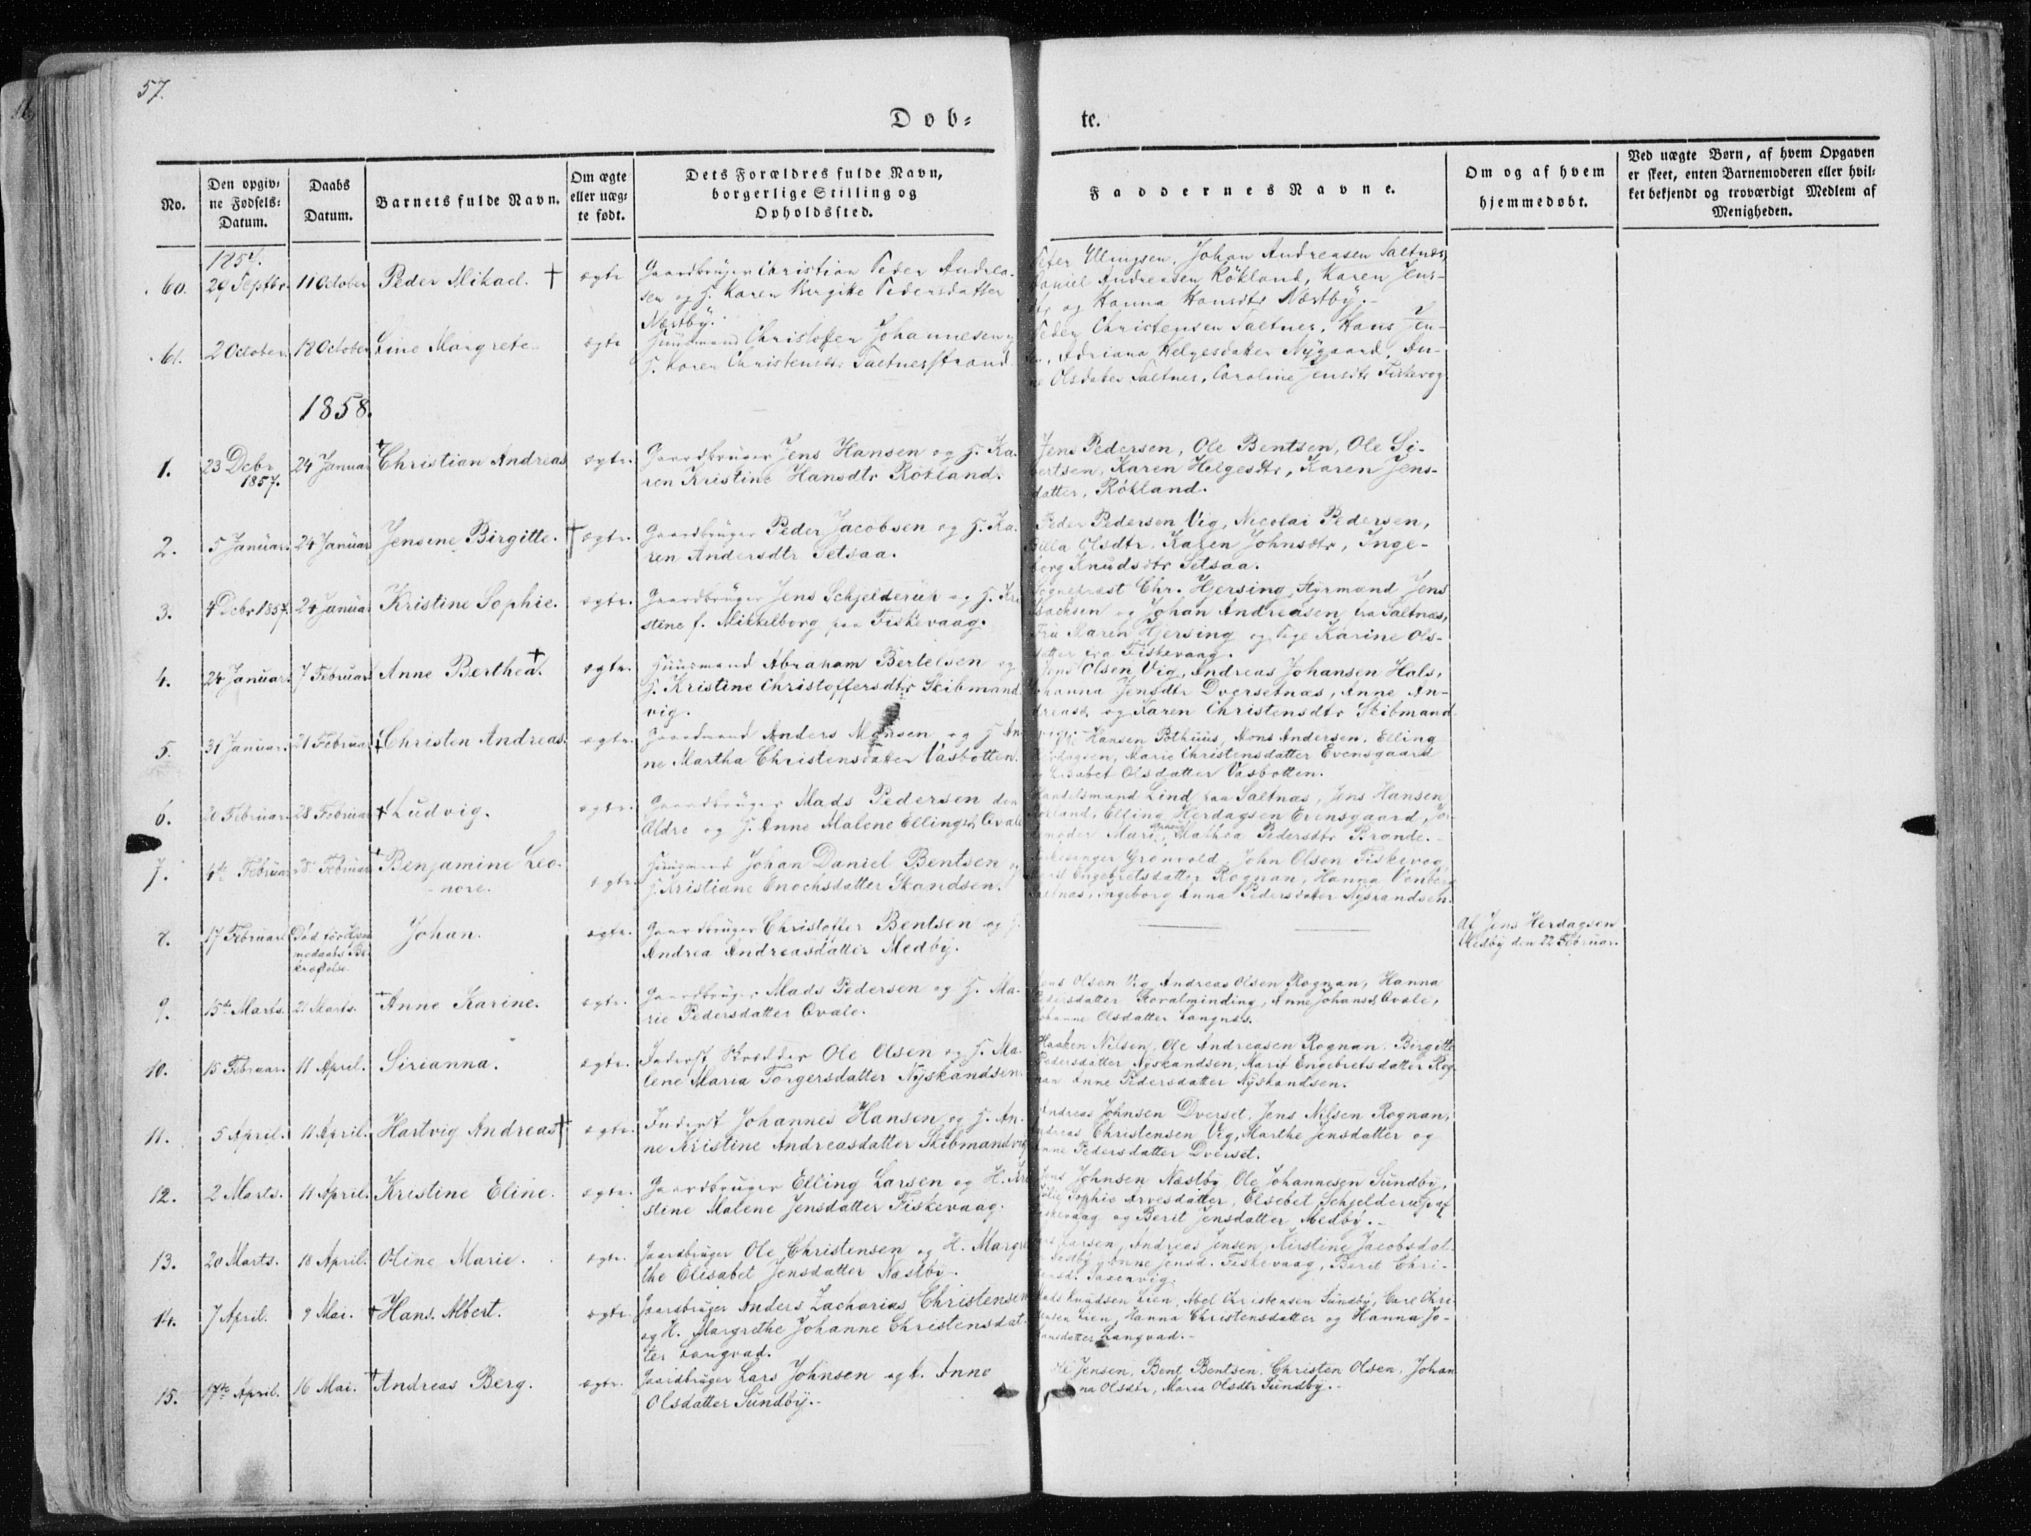 57.
Døb-
te.
No.
Den opgiv-
ne Fødsels-
Datum.
Daabs
Datum.
Barnets fulde Navn.
Om ægte
eller uæg-
te født.
Dets Forældres fulde Navn,
borgerlige Stilling og
Opholdssted.
Faddernes Navne.
Om og af hvem
hjemmedøbt.
Ved uægte Børn, af hvem Opgaven
er skeet, enten Barnemoderen eller hvil-
ket bekjendt og troværdigt Medlem af
Menigheden.
1857.
60. 29 Septbr. 11 October Peder Mikael. † ægte Gaardbruger Christian Peder Andrea-
sen og H. Karen Birgitte Pedersdatter
Næstby.
Peter Ellingsen, Johan Andreasen Saltnæs,
Daniel Andreasen Rökland, Karen Jens-
og Hanna Hansdtr Næstby.
61. 2 October. 18 October Line Margrete. ægte Huusmand Christofer Johannesen og
H. Karen Christensdtr Saltnesstrand
Peder Christensen Saltnes, Hans Jen-
Adriana Helgesdatter Nygaard, An-
ne Olsdatter Saltnes, Caroline Jensdtr Fiskevog
1858.
1. 23 Debr 1857. 24 Januar † Christian Andreas ægte. Gaardbruger Jens Hansen og H. Ka-
ren Kristine Hansdtr Rökland.
Jens Pedersen, Ole Bentsen, Ole Si-
bertsen, Karen Helgesdtr, Karen Jens-
datter, Rökland.
2. 5 Januar. 24 Januar Jensine Birgitte. † ægte. Gaardbruger Peder Jacobsen og H. Ka-
ren Andersdtr Setsaa.
Peder Pedersen Vig, Nicolai Pedersen,
Billa Olsdtr, Karen Johnsdtr, Inge-
borg Knudsdtr Setsaa.
3. 4 Debr 1857. 24 Januar Kristine Sophie. ægte. Gaardbruger Jens Schjelderup og H. Kri-
stine f. Mikkelborg paa Fiskevaag.
Sogneprest Chr. Hjersing, Styrmand Jens
Isachsen og Johan Andreasen fra Saltnæs,
Fru Karen Hjersing og Pige Karine Ols-
datter fra Fiskevaag.
4. 24 Januar. 7 Februar. Anne Berthea. † ægte. Huusmand Abraham Bertelsen og
H. Kristine Christoffersdtr Skibmand-
vig.
Jens Olsen Vig, Andreas Johansen Hals,
Johanna Jensdtr Dversetnæs, Anne An-
dreasd. og Karen Christensdtr Skibmand
5. 31 Januar. 21 Februar † Christen Andreas. ægte. Gaardmand Anders Monsen og H. An-
ne Martha Christensdatter Vasbotten.
Hansen Pothuus, Mons Andersen, Elling
Herdagsen, Marie Christensdatter Evensgaard
og Elisabet Olsdatter Vasbotten.
6. 20 Februar. 28 Februar † Ludvig. ægte. Gaardbruger Mads Pedersen den
Ældre og H. Anne Malene Ellingsd. Qvale
Handelsmand Lind paa Saltnæs, Jens Hansen
Rökland, Elling Herdagsen Evensgaard, Jor-
demoder Marie Mathea Pedersdtr Brande.
7. 4de Februar 28 Februar † Benjamine Leo-
nore. ægte. Huusmand Johan Daniel Bentsen og
H. Kristiane Enochsdatter Skandsen.
Kirkesanger Grönvold, John Olsen Fiskevog,
Engebretsdatter Rognan, Hanna Venberg
Saltnæs, Ingeborg Anna Pedersdatter Nyskandsen.
8. 17 Februar. Död før Hjem-
medaabs Be-
kræftelse. Johan. ægte. Gaardbruger Christoffer Bentsen og H.
Andrea Andreasdatter Medby.
Af Jens Herdagsen
Medby den 22 Februar.
9. 15de Marts. 21 Marts. † Anne Karine. ægte. Gaardbruger Mads Pedersen og H. Ma-
rie Pedersdatter Qvale.
Jens Olsen Vig, Andreas Olsen Rognan, Hanna
Pedersdatter Storalminding, Anne Johansd. Qvale,
Johanne Olsdatter Langnæs.
10. 15 Februar. 11 April. Sirianna. ægte. Inderst Skrædder Ole Olsen og H. Ma-
lene Maria Torgersdatter Nyskandsen.
Haaken Nilsen, Ole Andreasen Rognan, Birgitte
Pedersdatter Nyskandsen, Marit Engebretsdatter Rog-
nan Anne Pedersdatter Nyskandsen.
11. 5 April. 11 April. Hartvig Andreas † ægte. Inderst Johannes Hansen og H. An-
ne Kristine Andreasdatter Skibmandvig
Andreas Johnsen Dverset, Jens Nilsen Rognan,
Andreas Christensen Vig, Marthe Jensdatter og
Anne Pedersdatter Dverset.
12. 2 Marts. 11 April. Kristine Eline. ægte. Gaardbruger Elling Larsen og H. Kri-
stine Malene Jensdatter Fiskevaag.
Jens Johnsen Næstby, Ole Johannesen Sundby,
Julie Sophie Arvesdatter, Elsebet Schjelderup af
Fiskevaag og Berit Jensdatter Medby.
13. 20 Marts. 18 April. Oline Marie. ægte. Gaardbruger Ole Christensen og H. Margre-
the Elisabet Jensdatter Næstby.
Larsen, Andreas Jensen, Kirstine Jacobsdat.
Næstby, Anne Jensd. Fiskevaag, Berit Chri-
stensd. Saxenvig.
14. 7 April. 9 Mai. † Hans Albert. ægte. Gaardbruger Anders Zacharias Christensen
og H. Margrethe Johanne Christensdat-
ter Langvad.
Mads Knudsen Lien, Abel Christensen Sundby, Carl Chri-
stensen Lien, Hanna Christensdatter og Hanna Jo-
hansdatter Langvad.
15. 17de April. 16 Mai. † Andreas Berg. ægte. Gaardbruger Lars Johnsen og H. Anne
Olsdatter Sundby.
Ole Jensen, Bent Bentsen, Christen Olsen, Johan-
na Olsdtr, Maria Olsdtr Sundby.